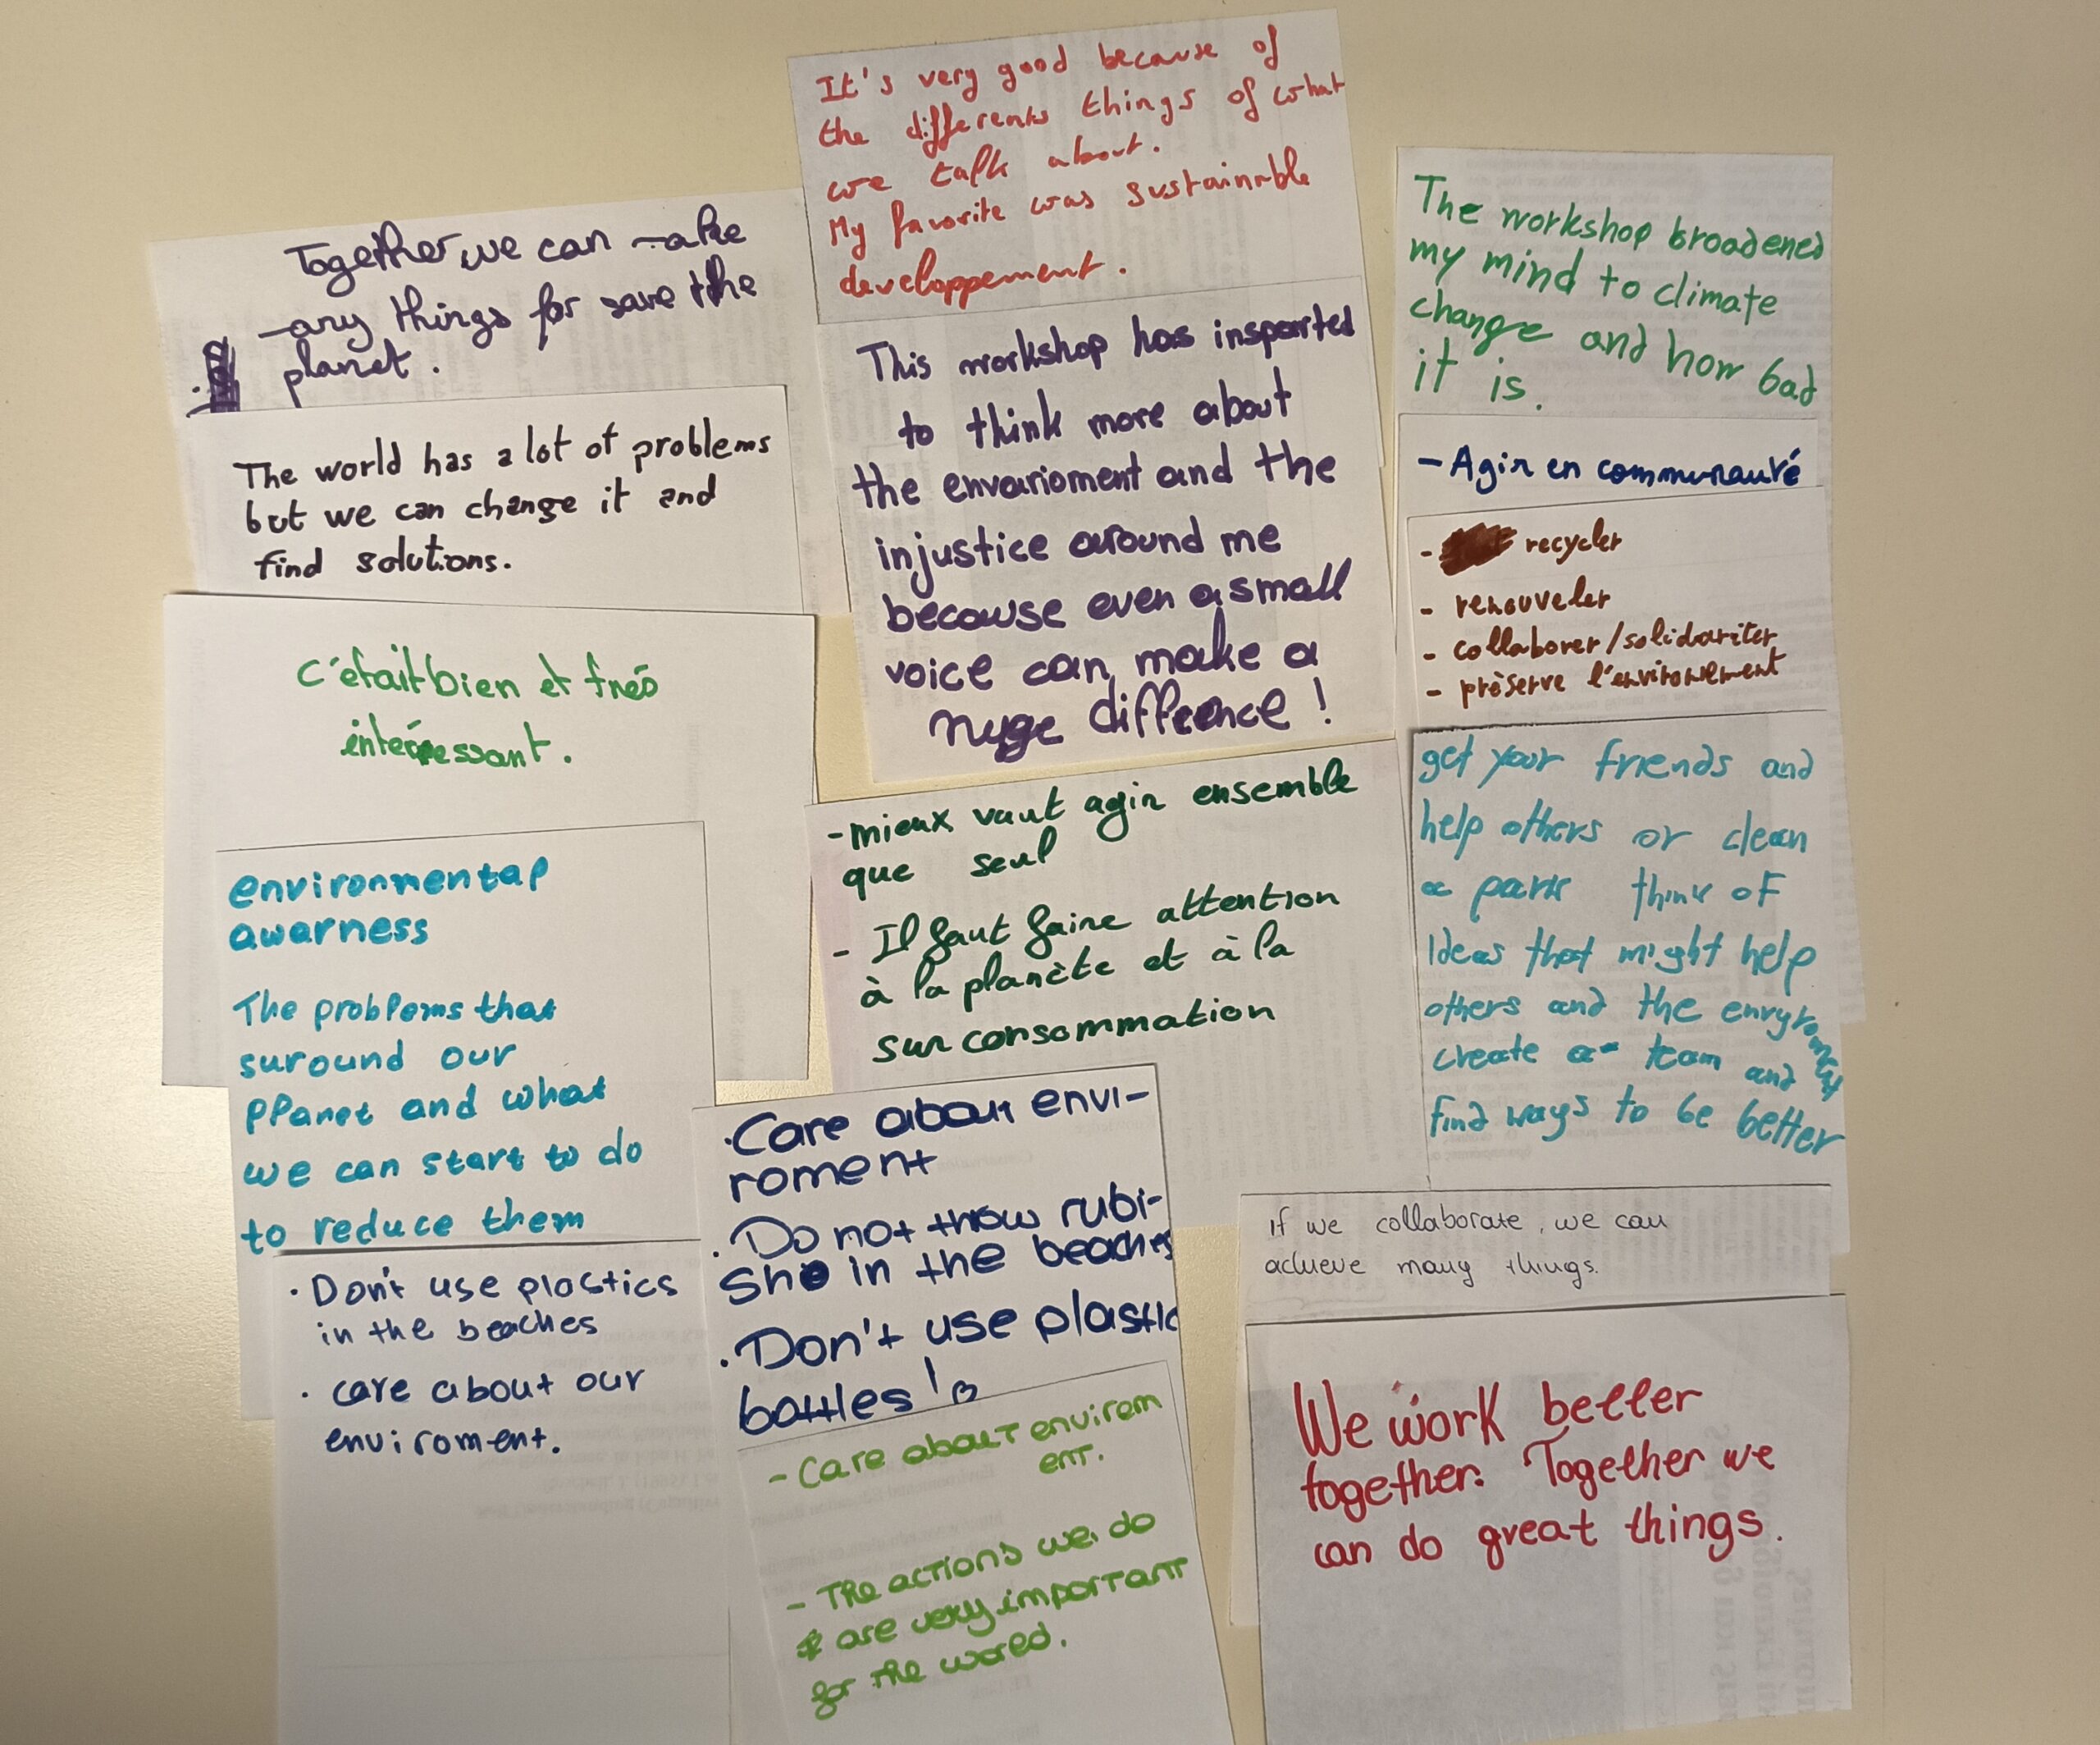 Together we can make
many things for save the
planet.
The world has a lot of problems
but we can change it and
find solutions.
C'était bien et trés
intéressant.
environmental
awarness
The problems that
suround our
planet and what
we can start to do
to reduce them
· Don't use plastics
in the beaches
· care about our
enviroment.
It's very good because of
the differents things of what
we talk about.
My favorite was sustainable
developpement.
This workshop has insparted
to think more about
the envarioment and the
injustice around me
because even a small
voice can make a
huge diffrence!
- mieux vaut agir ensemble
que seul
- Il faut faire attention
à la planète et à la
sur consommation
· Care about envi-
roment
· Do not throw rubi-
sh in the beaches
· Don't use plastic
bottles!
- Care about envirom
ent.
- The actions we do
are very important
for the world.
The workshop broadened
my mind to climate
change and how bad
it is.
- Agir en communauté
- recycler
- renouveler
- collaborer/solidariter
- préserve l'environement
get your friends and
help others or clean
a park think of
Ideas that might help
others and the envyroment
create a team and
find ways to be better
If we collaborate, we can
achieve many things.
We work better
together. Together we
can do great things.